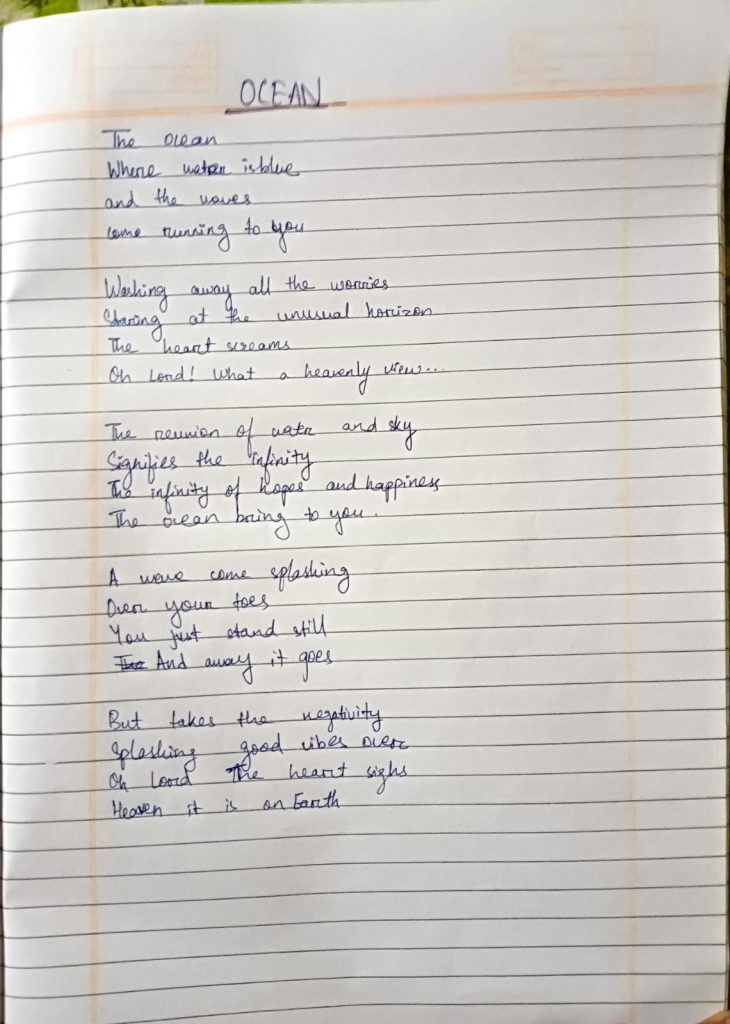 OCEAN
The ocean
Where water is blue
and the waves
come running to you
Washing away all the worries
Staring at the unusual horizon
The heart screams
Oh Lord! What a heavenly view...
The reunion of water and sky
Signifies the infinity
The infinity of hopes and happiness
The ocean bring to you.
A wave come splashing
Over your toes
You just stand still
And away it goes
But takes the negativity
Splashing good vibes over
Oh Lord The heart sighs
Heaven it is on Earth